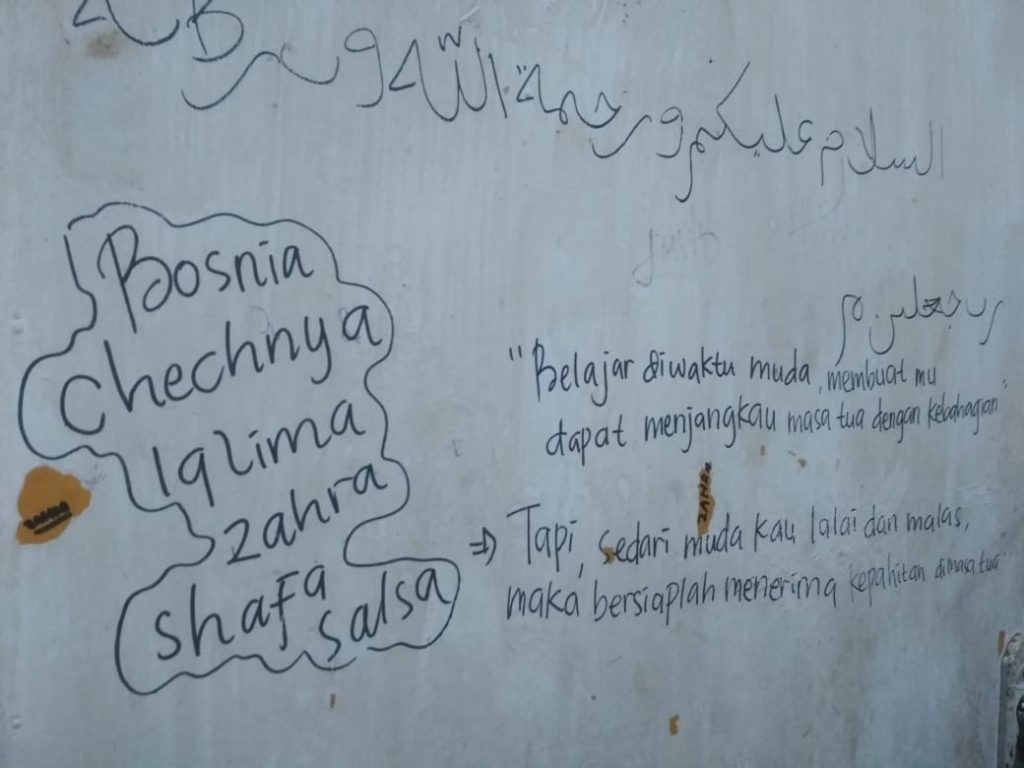 السلام عليكم ورحمة الله وبر
Bosnia
Chechnya
Iqlima
zahra
shafa
salsa
"Belajar diwaktu muda, membuat mu
dapat menjangkau masa tua dengan kebahagian"
⇒ Tapi, sedari muda kau lalai dan malas,
maka bersiaplah menerima kepahitan dimasa tua